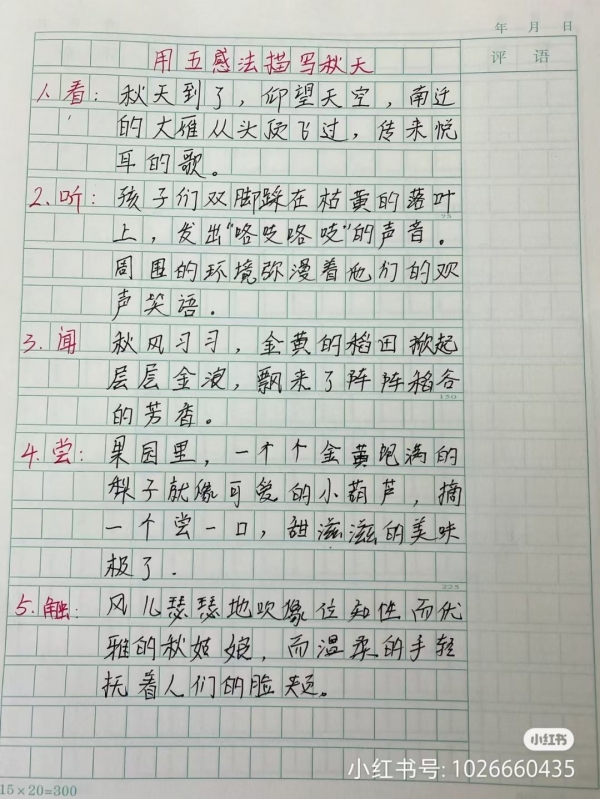 年 月 日
评 语
用五感法描写秋天
1.看：秋天到了，仰望天空，南迁
的大雁从头顶飞过，传来悦
耳的歌。
2.听：孩子们双脚踩在枯黄的落叶
75
上，发出“咯吱咯吱”的声音。
周围的环境弥漫着他们的欢
声笑语.
3.闻 秋风习习，金黄的稻田掀起
层层金浪，飘来了阵阵稻谷
150
的芳香。
4.尝：果园里，一个个金黄饱满的
梨子就像可爱的小葫芦，摘
一个尝一口，甜滋滋的美味
极了.
225
5.触：风儿瑟瑟地吹像位知性而优
雅的秋姑娘，而温柔的手轻
抚着人们的脸颊。
小红书
小红书号：1026660435
15×20=300